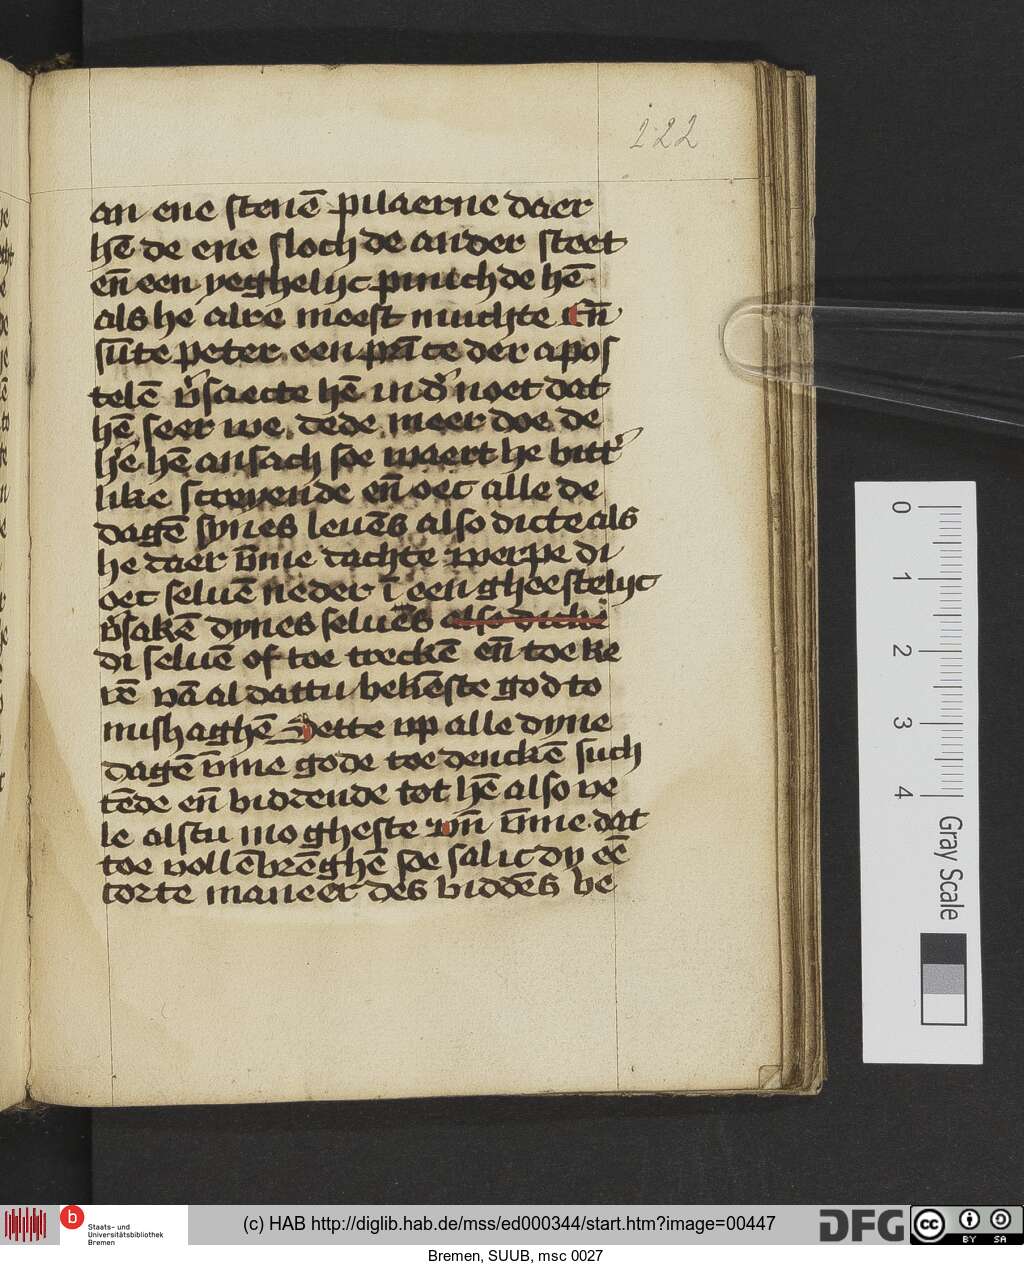 122
an ene stenē pilaerne daer
hē de ene sloch de ander steet
en̄ een yeghelijc pinichde hē
als he alre meest muchte En̄
sūte peter een prīce der apos
telē v̄saecte hē in d' noet dat
hē seer we dede meer doe de
h'e hē ansach soe waert he bitt'
like screyende en̄ oec alle de
dagē synes leuēs also dicke als
he daer v̄me dachte werpe di
oec seluē neder ī een gheestelijc
v̄sakē dynes seluēs also dicke
di seluē of toe treckē en̄ toe ke
rē vā al dattu bekēste god to
mishaghē Sette up alle dyne
dagē v̄me gode toe denckē such
tēde en̄ biddende tot hē also ve
le alstu mogheste Vn̄ v̄me dat
toe vollēbrēghē soe sal ic dy eē
corte maneer des biddēs be
0
1
2
3
4
Gray Scale
b
Staats- und
Universitätsbibliothek
Bremen
(c) HAB http://diglib.hab.de/mss/ed000344/start.htm?image=00447
DFG
cc
BY
SA
Bremen, SUUB, msc 0027